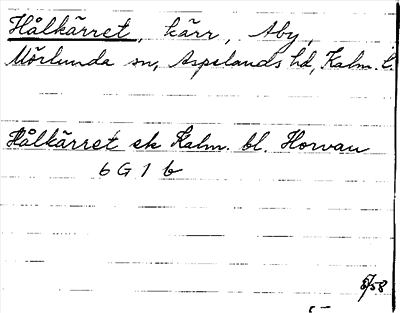 Hålkärret, kärr, Åby,
Mörlunda sn, Aspelands hd, Kalm. l.
Hålkärret ek Kalm. bl. Horvan
6 G 1 b
5/58